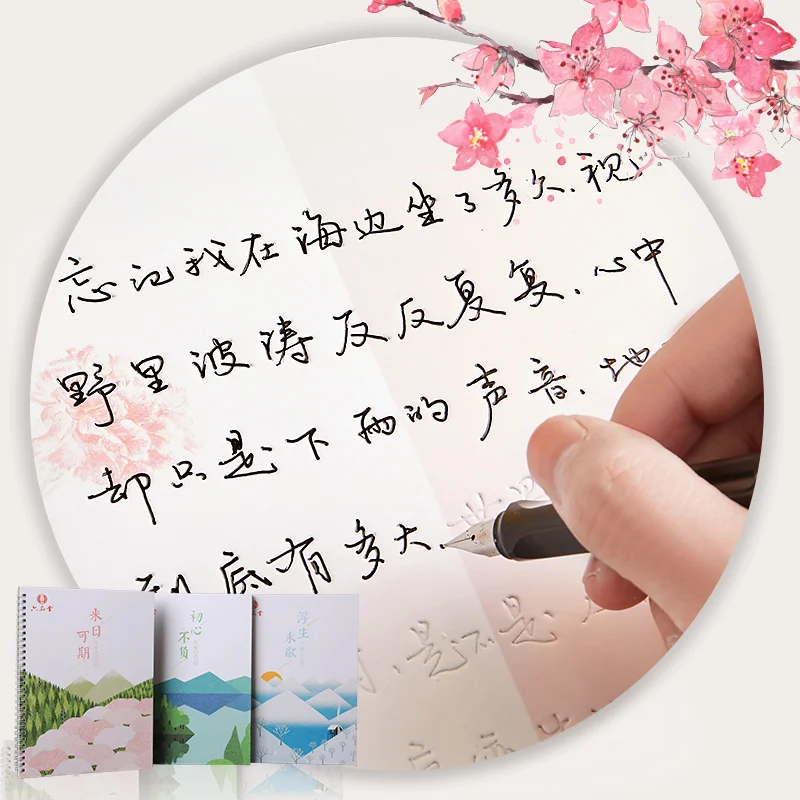 忘记我在海边坐了多久,视
野里波涛反反复复,心中
却只是下雨的声音,地
到底有多大,世
是不是
六品堂
来日可期
初心不负
浮生未歇